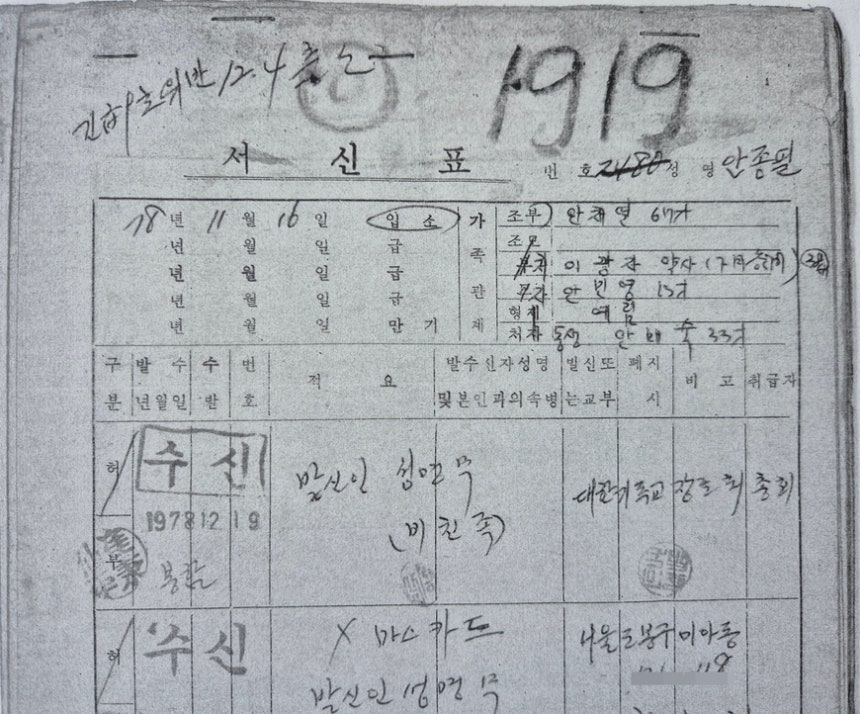 긴급9호위반 12.4
1919
서 신 표
번 호 2480 성 명 안종필
78년 11월 16일 입소 가 조부) 안채열 67才
년 월 일 급 족 조모
년 월 일 급 이광자 약사
년 월 일 급 관 안민영 13才
년 월 일 만기 계 형제 예림
처자 동생 33才
구분 발수년월일 수발 번호 적요 발수인자성명및본인과의속병 발신또는교부 폐지시 비고 취급자
허 수신 발신인 성명무 대한기독교장로회총회
1978 12 19 (비친족)
부 봉함
허 수신 X마스카드 서울도봉구미아동
발신인 성명무